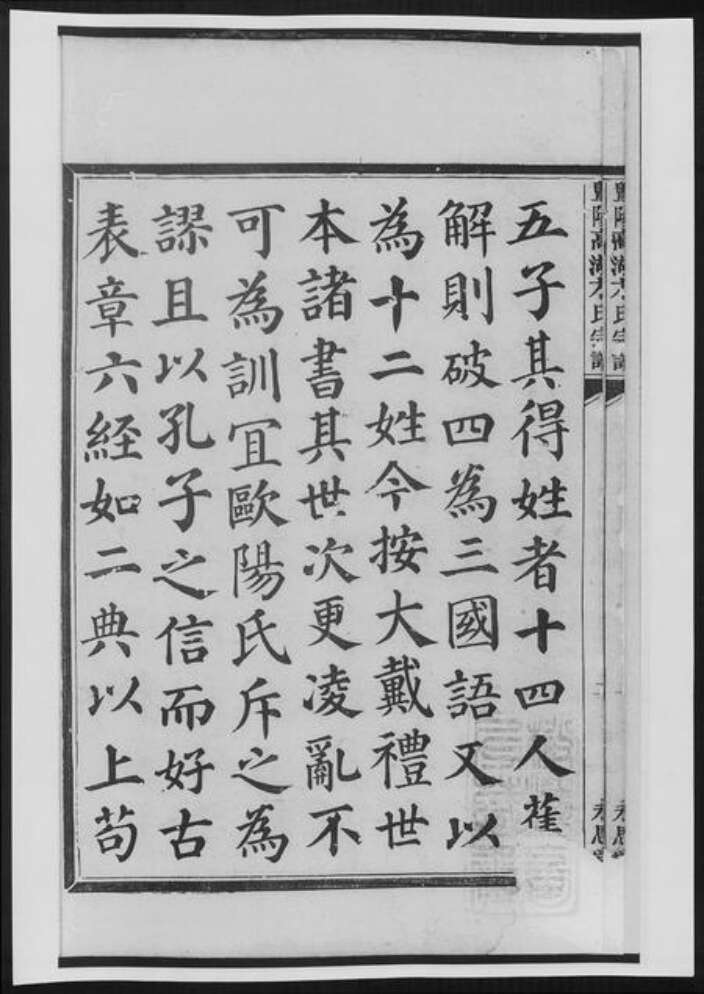 五子其得姓者十四人崔
解則破四為三國語又以
為十二姓今按大戴禮世
本諸書其世次更凌亂不
可為訓冝歐陽氏斥之為
謬且以孔子之信而好古
表章六經如二典以上苟